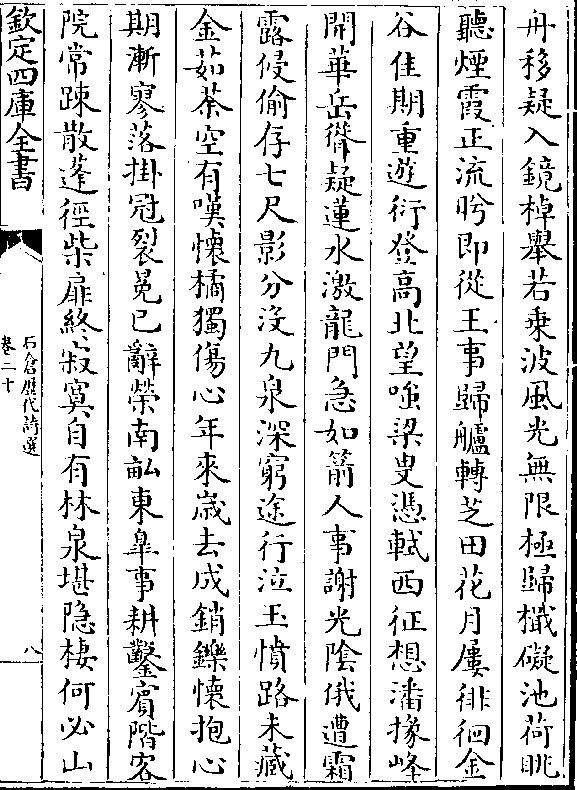 舟移疑入鏡棹舉若乗波風光無限極歸檝礙池荷眺
聽煙霞正流眄即從王事歸艫轉芝田花月屢徘徊金
谷佳期重遊衍登高北望嗤梁叟憑軾西征想潘掾峰
開華岳聳疑蓮水激龍門急如箭人事謝光陰俄遭霜
露侵偷存七尺影分沒九泉深窮途行泣玉憤路未藏
金茹荼空有嘆懷橘獨傷心年來嵗去成銷鑠懷抱心
期漸寥落掛冠裂冕已辭榮南畝東臯事耕鑿賓階客
院常踈散蓬徑柴扉終寂寞自有林泉堪隐棲何必山
欽定四庫全書
石倉歴代詩選
卷二十
八